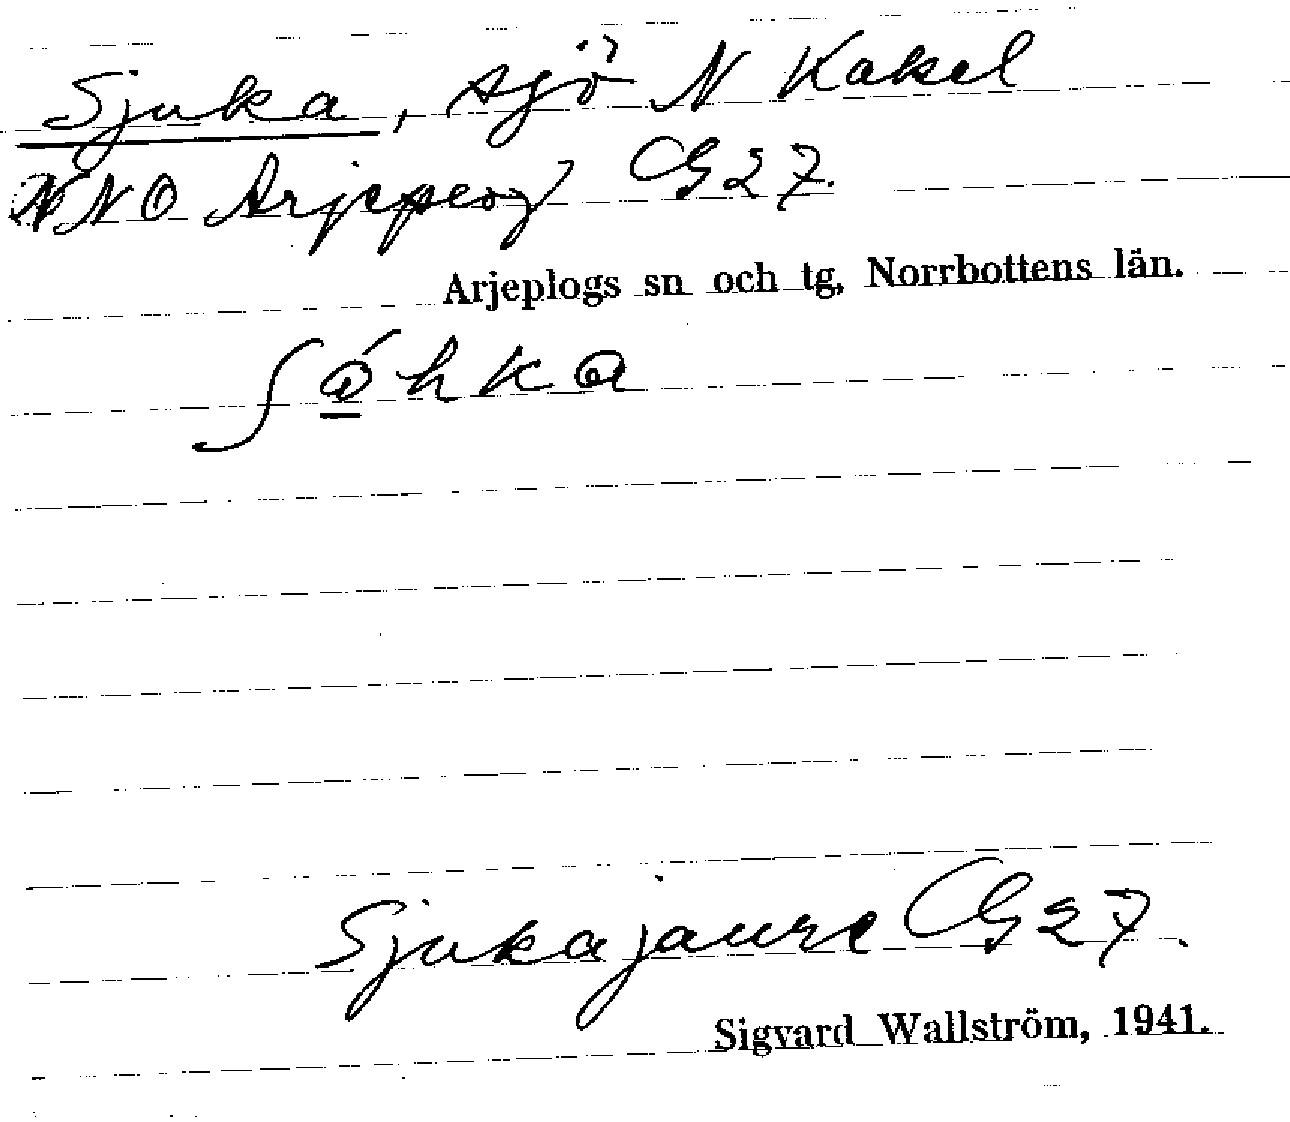 Sjuka, sjö N Kakel
NNO Arjeplog G27.
Arjeplogs sn och tg, Norrbottens län.
Sjukajaure G27.
Sigvard Wallström, 1941.